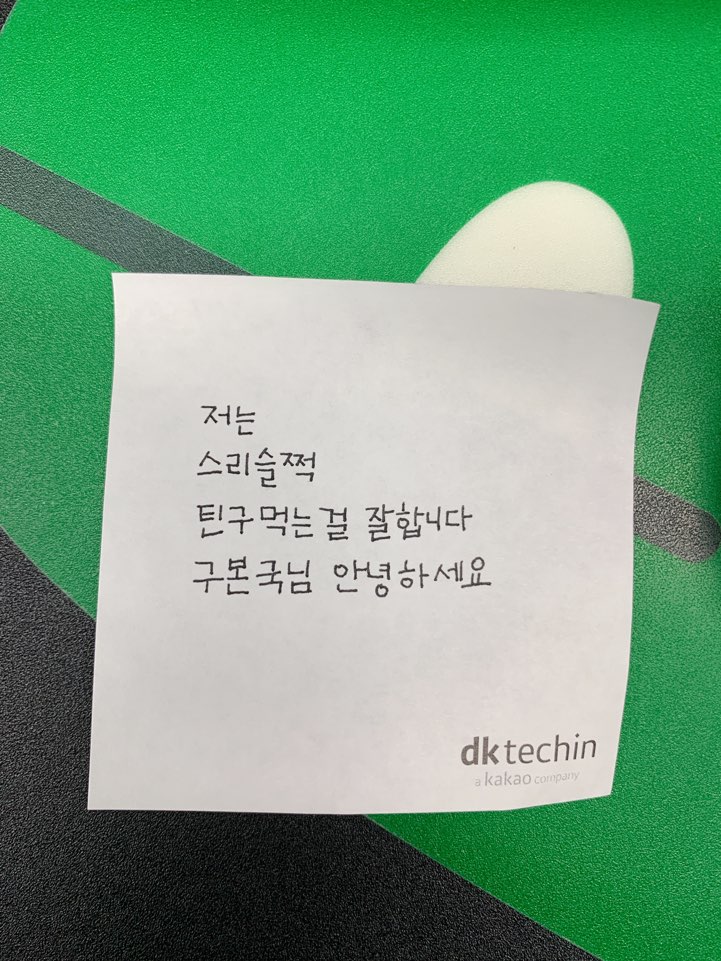 저는
스리슬쩍
틴구 먹는걸 잘합니다
구본국님 안녕하세요
dktechin
a kakao company